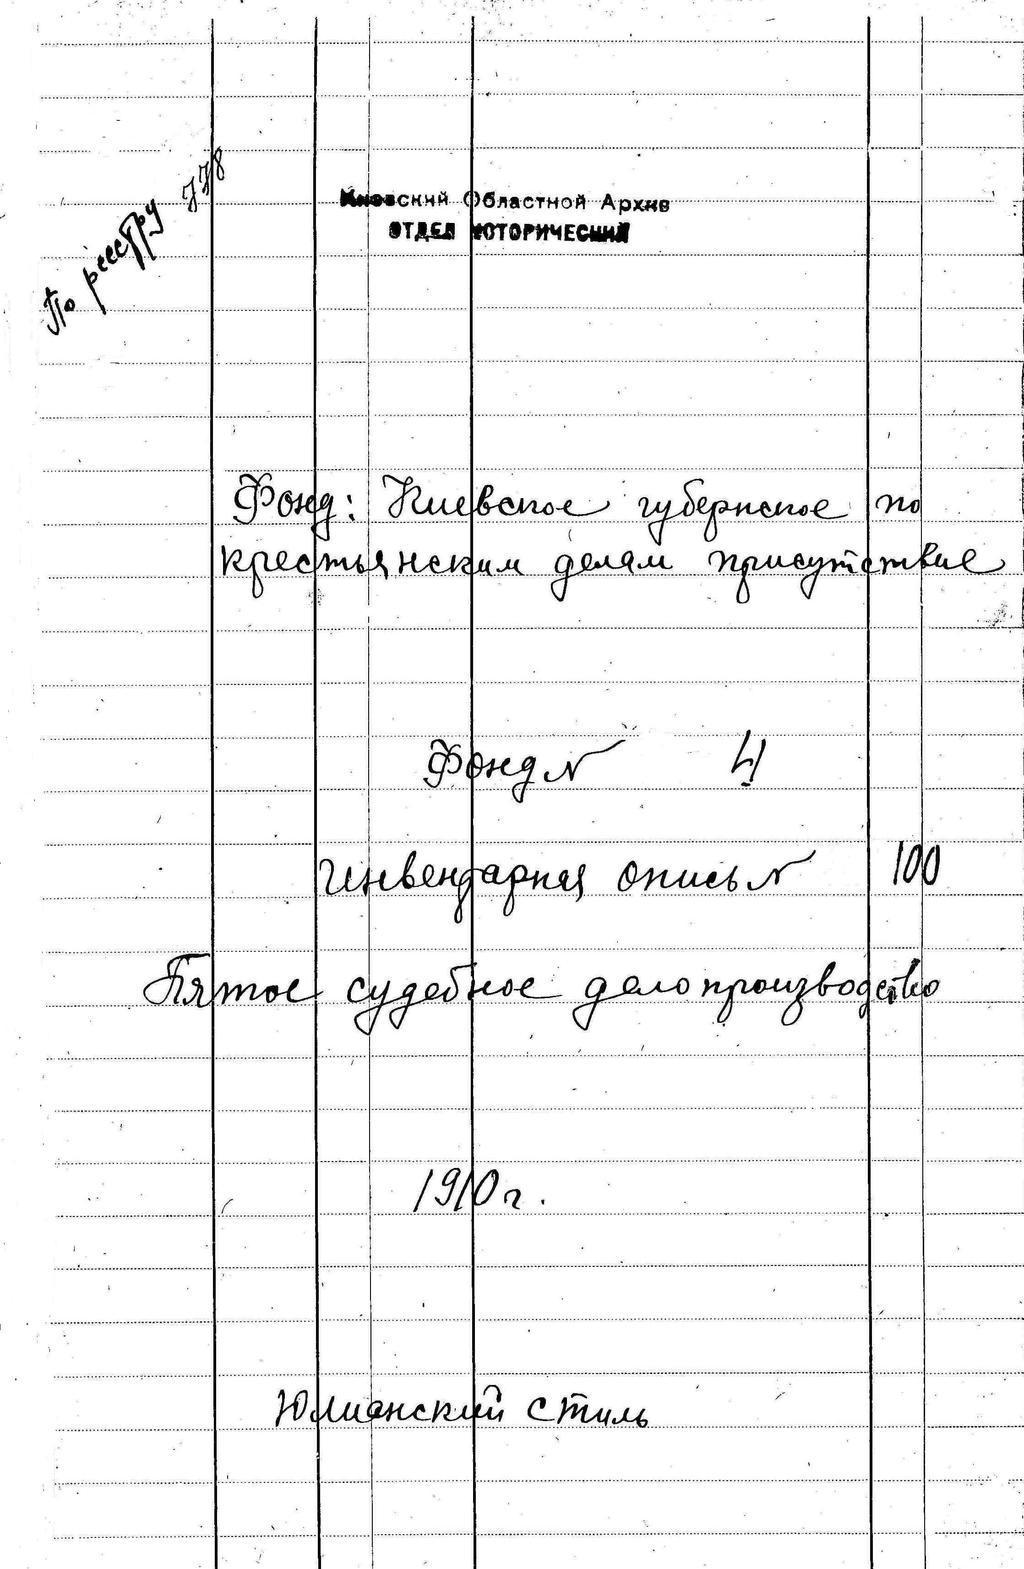 По реестру 778
Киевский Областной Архив
ОТДЕЛ ИСТОРИЧЕСКИЙ
Фонд: Киевское губернское по
крестьянским делам присутствие
Фонд N 4
Инвентарная опись N 100
Пятое судебное делопроизводство
1910 г.
Юлианский стиль